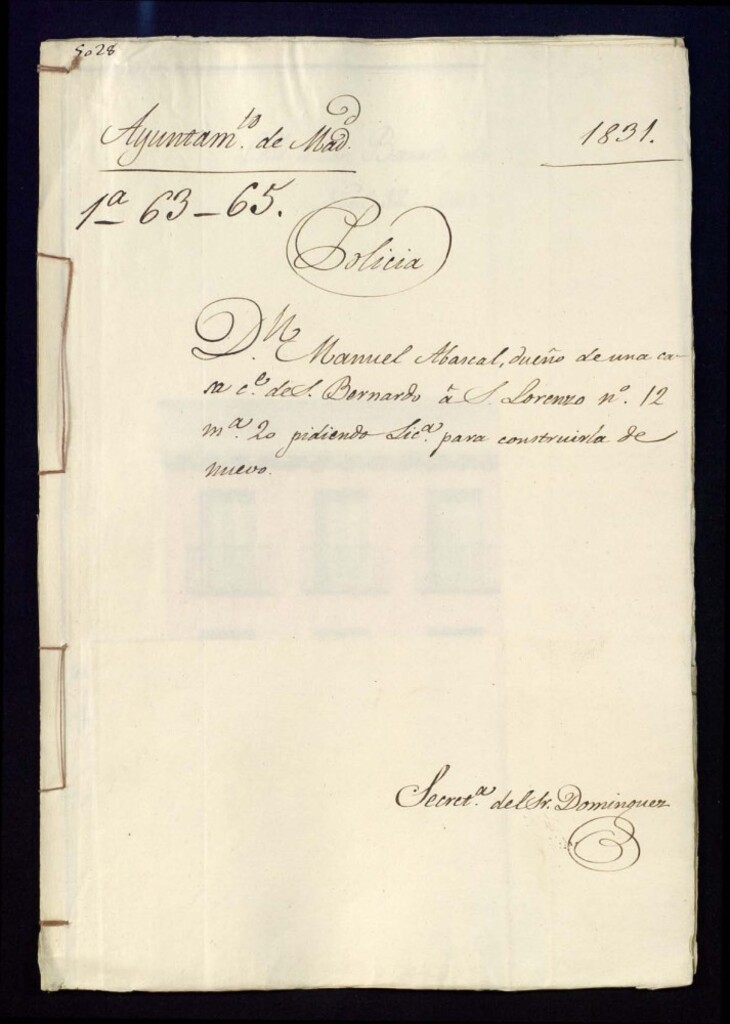 5028
Ayuntam.to de Mad.d
1831.
1a 63-65.
Policia
D.n Manuel Abascal, dueño de una ca-
sa c.e de S. Bernardo á S. Lorenzo no. 12
m.a 20 pidiendo Lic.a para construirla de
nuevo.
Secret.a del Sr. Dominguez